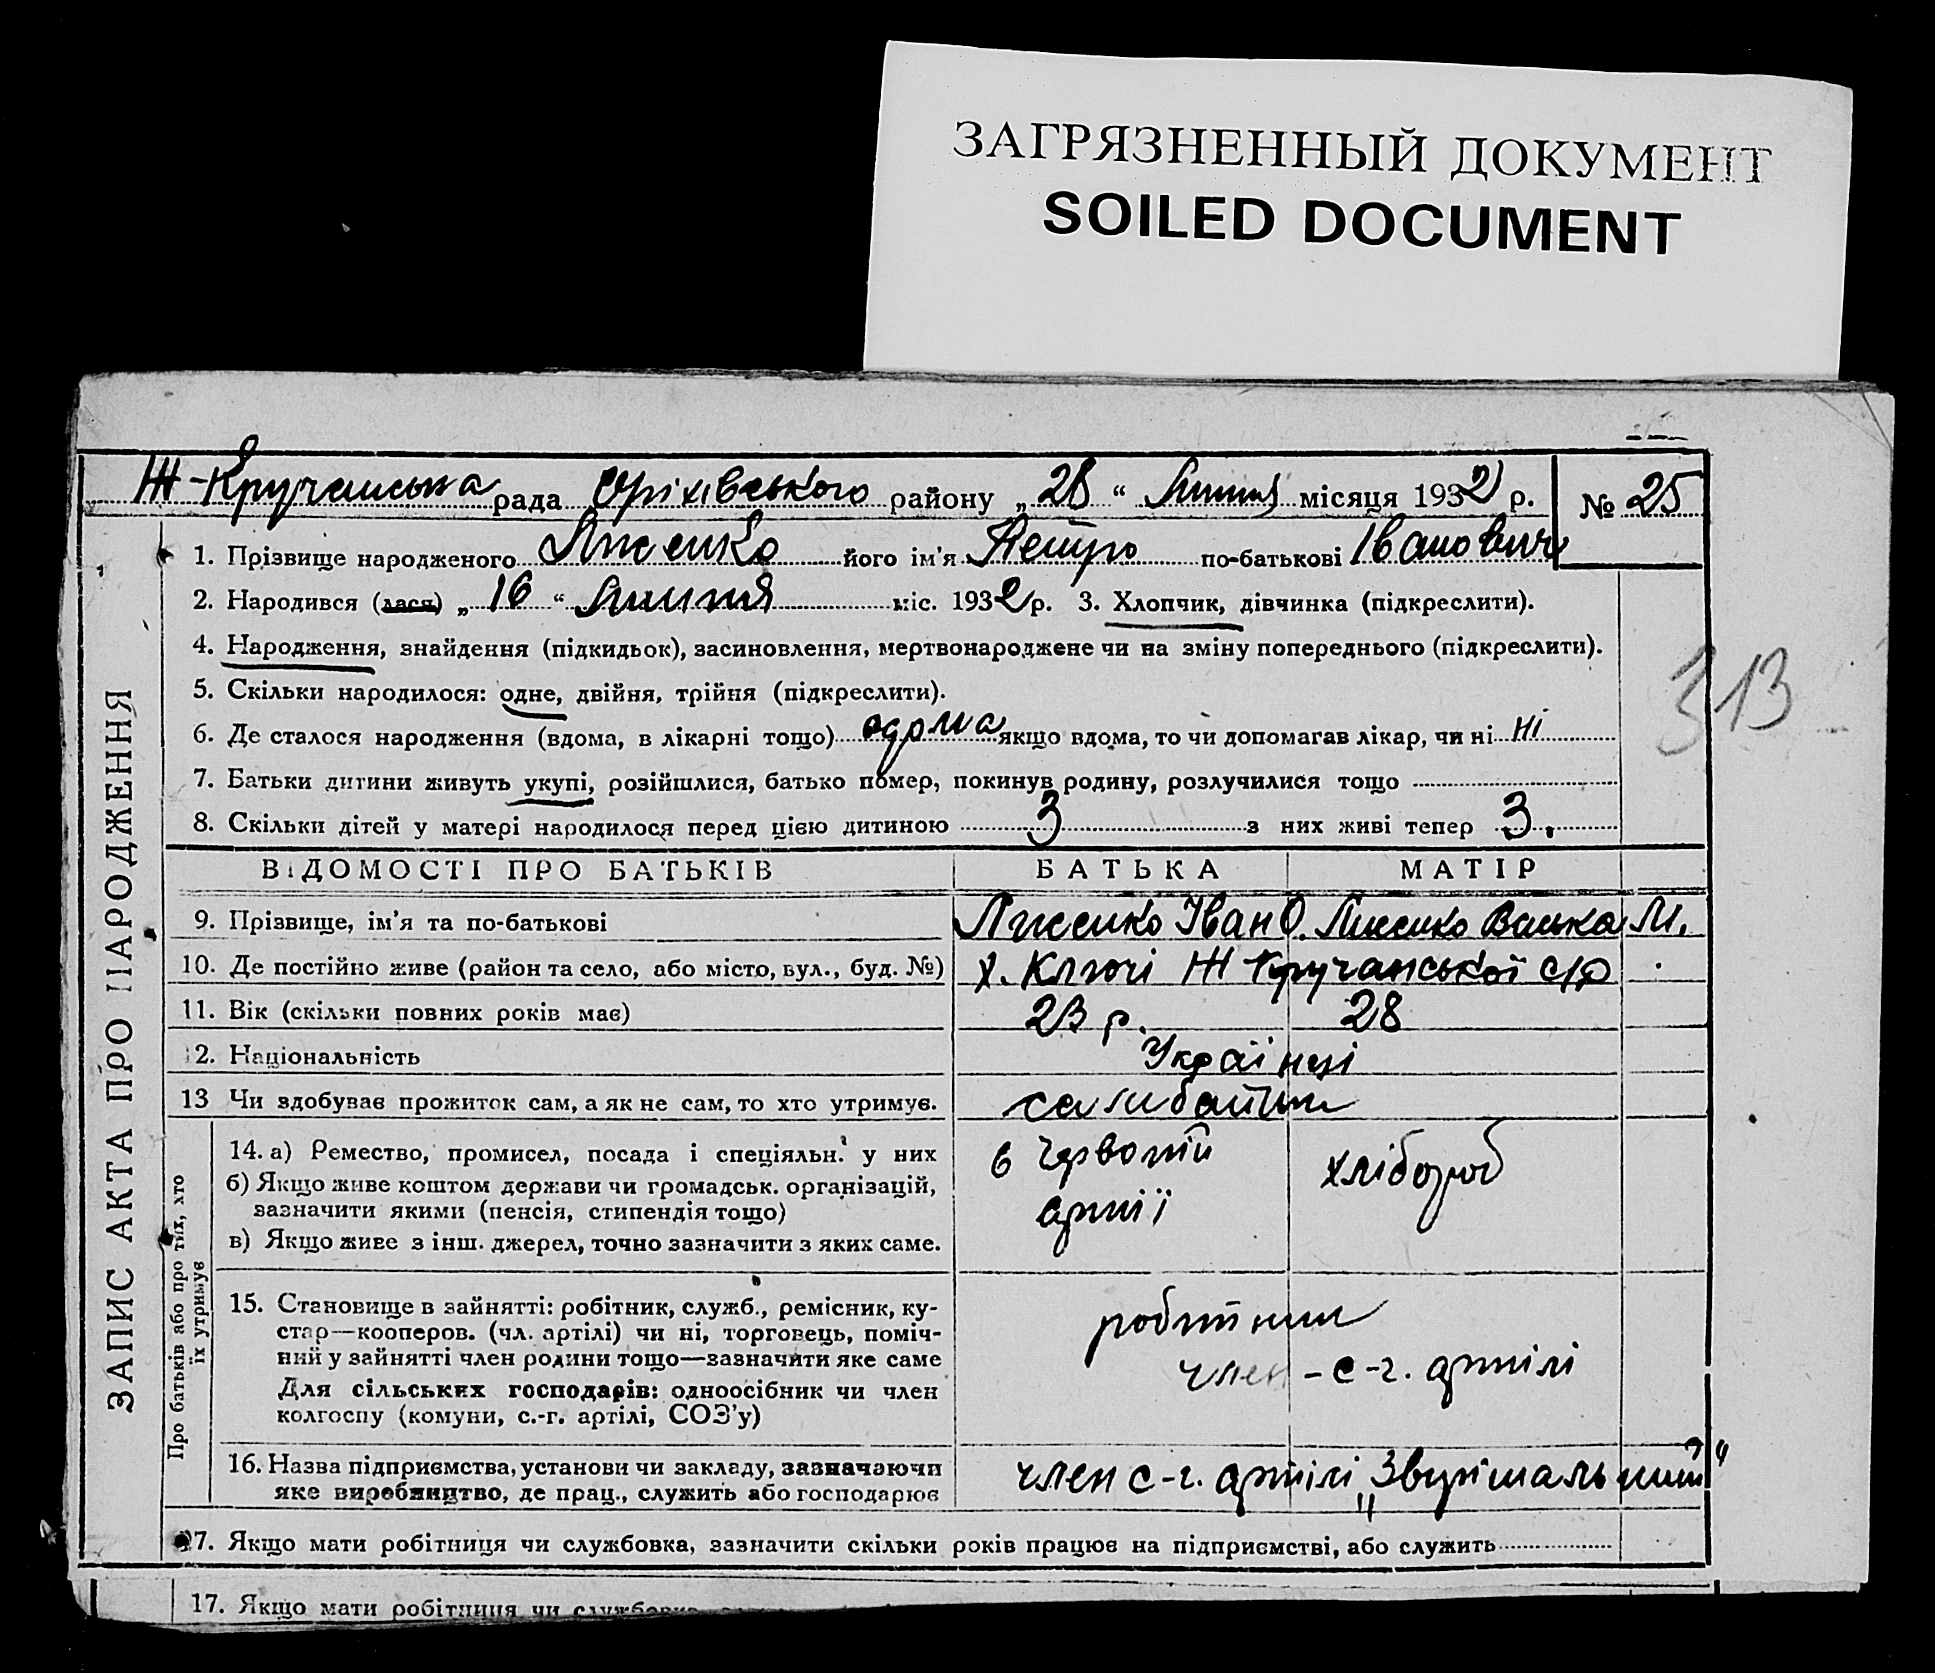 ЗАГРЯЗНЕННЫЙ ДОКУМЕНТ
SOILED DOCUMENT
Ж-Кручанська рада Оріхівського району „28“ Липня місяця 1932 р. № 25
1. Прізвище народженого Лисенко його ім'я Петро по-батькові Іванович
2. Народився (лася) „16“ Липня міс. 1932 р. 3. Хлопчик, дівчинка (підкреслити).
4. Народження, знайдення (підкидьок), засиновлення, мертвонароджене чи на зміну попереднього (підкреслити).
5. Скільки народилося: одне, двійня, трійня (підкреслити).
313
6. Де сталося народження (вдома, в лікарні тощо) вдома якщо вдома, то чи допомагав лікар, чи ні ні
7. Батьки дитини живуть укупі, розійшлися, батько помер, покинув родину, розлучилися тощо
8. Скільки дітей у матері народилося перед цією дитиною 3 з них живі тепер 3.
ЗАПИС АКТА ПРО НАРОДЖЕННЯ
ВІДОМОСТІ ПРО БАТЬКІВ БАТЬКА МАТІР
9. Прізвище, ім'я та по-батькові Лисенко Іван О. Лисенко Васька М.
10. Де постійно живе (район та село, або місто, вул., буд. №) х. Ключі Ж Кручанської с/р
11. Вік (скільки повних років має) 23 р. 28
12. Національність Українці
13 Чи здобуває прожиток сам, а як не сам, то хто утримує.
Про батьків або про тих, хто їх утримує
14. а) Ремество, промисел, посада і спеціяльн. у них в Червоній хлібороб
б) Якщо живе коштом держави чи громадськ. організацій, армії
зазначити якими (пенсія, стипендія тощо)
в) Якщо живе з інш. джерел, точно зазначити з яких саме.
15. Становище в зайнятті: робітник, служб., ремісник, ку-
стар—кооперов. (чл. артілі) чи ні, торговець, поміч- робітник
ний у зайнятті член родини тощо—зазначити яке саме член -с-г. артілі
Для сільських господарів: одноосібник чи член
колгоспу (комуни, с.-г. артілі, СОЗ'у)
16. Назва підприємства, установи чи закладу, зазначаючи член с-г. артілі
яке виробництво, де прац., служить або господарює
17. Якщо мати робітниця чи службовка, зазначити скільки років працює на підприємстві, або служить
17. Якщо мати робітниця чи службовка